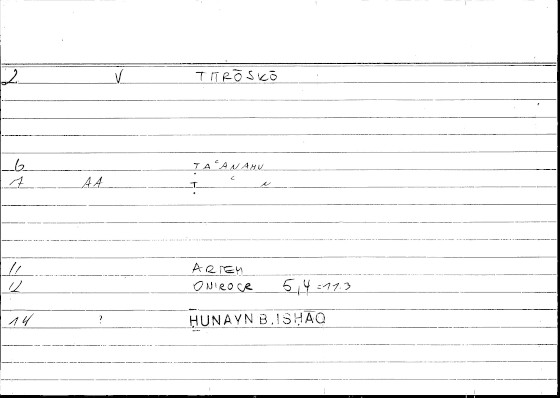 2 V TITRŌSKŌ
6 ṬAʿANAHU
7 AA Ṭ ʿ N
11 ARTEM
12 ONIROCR 5,4 = 11.3
14 ? ḤUNAYN B. ISḤĀQ